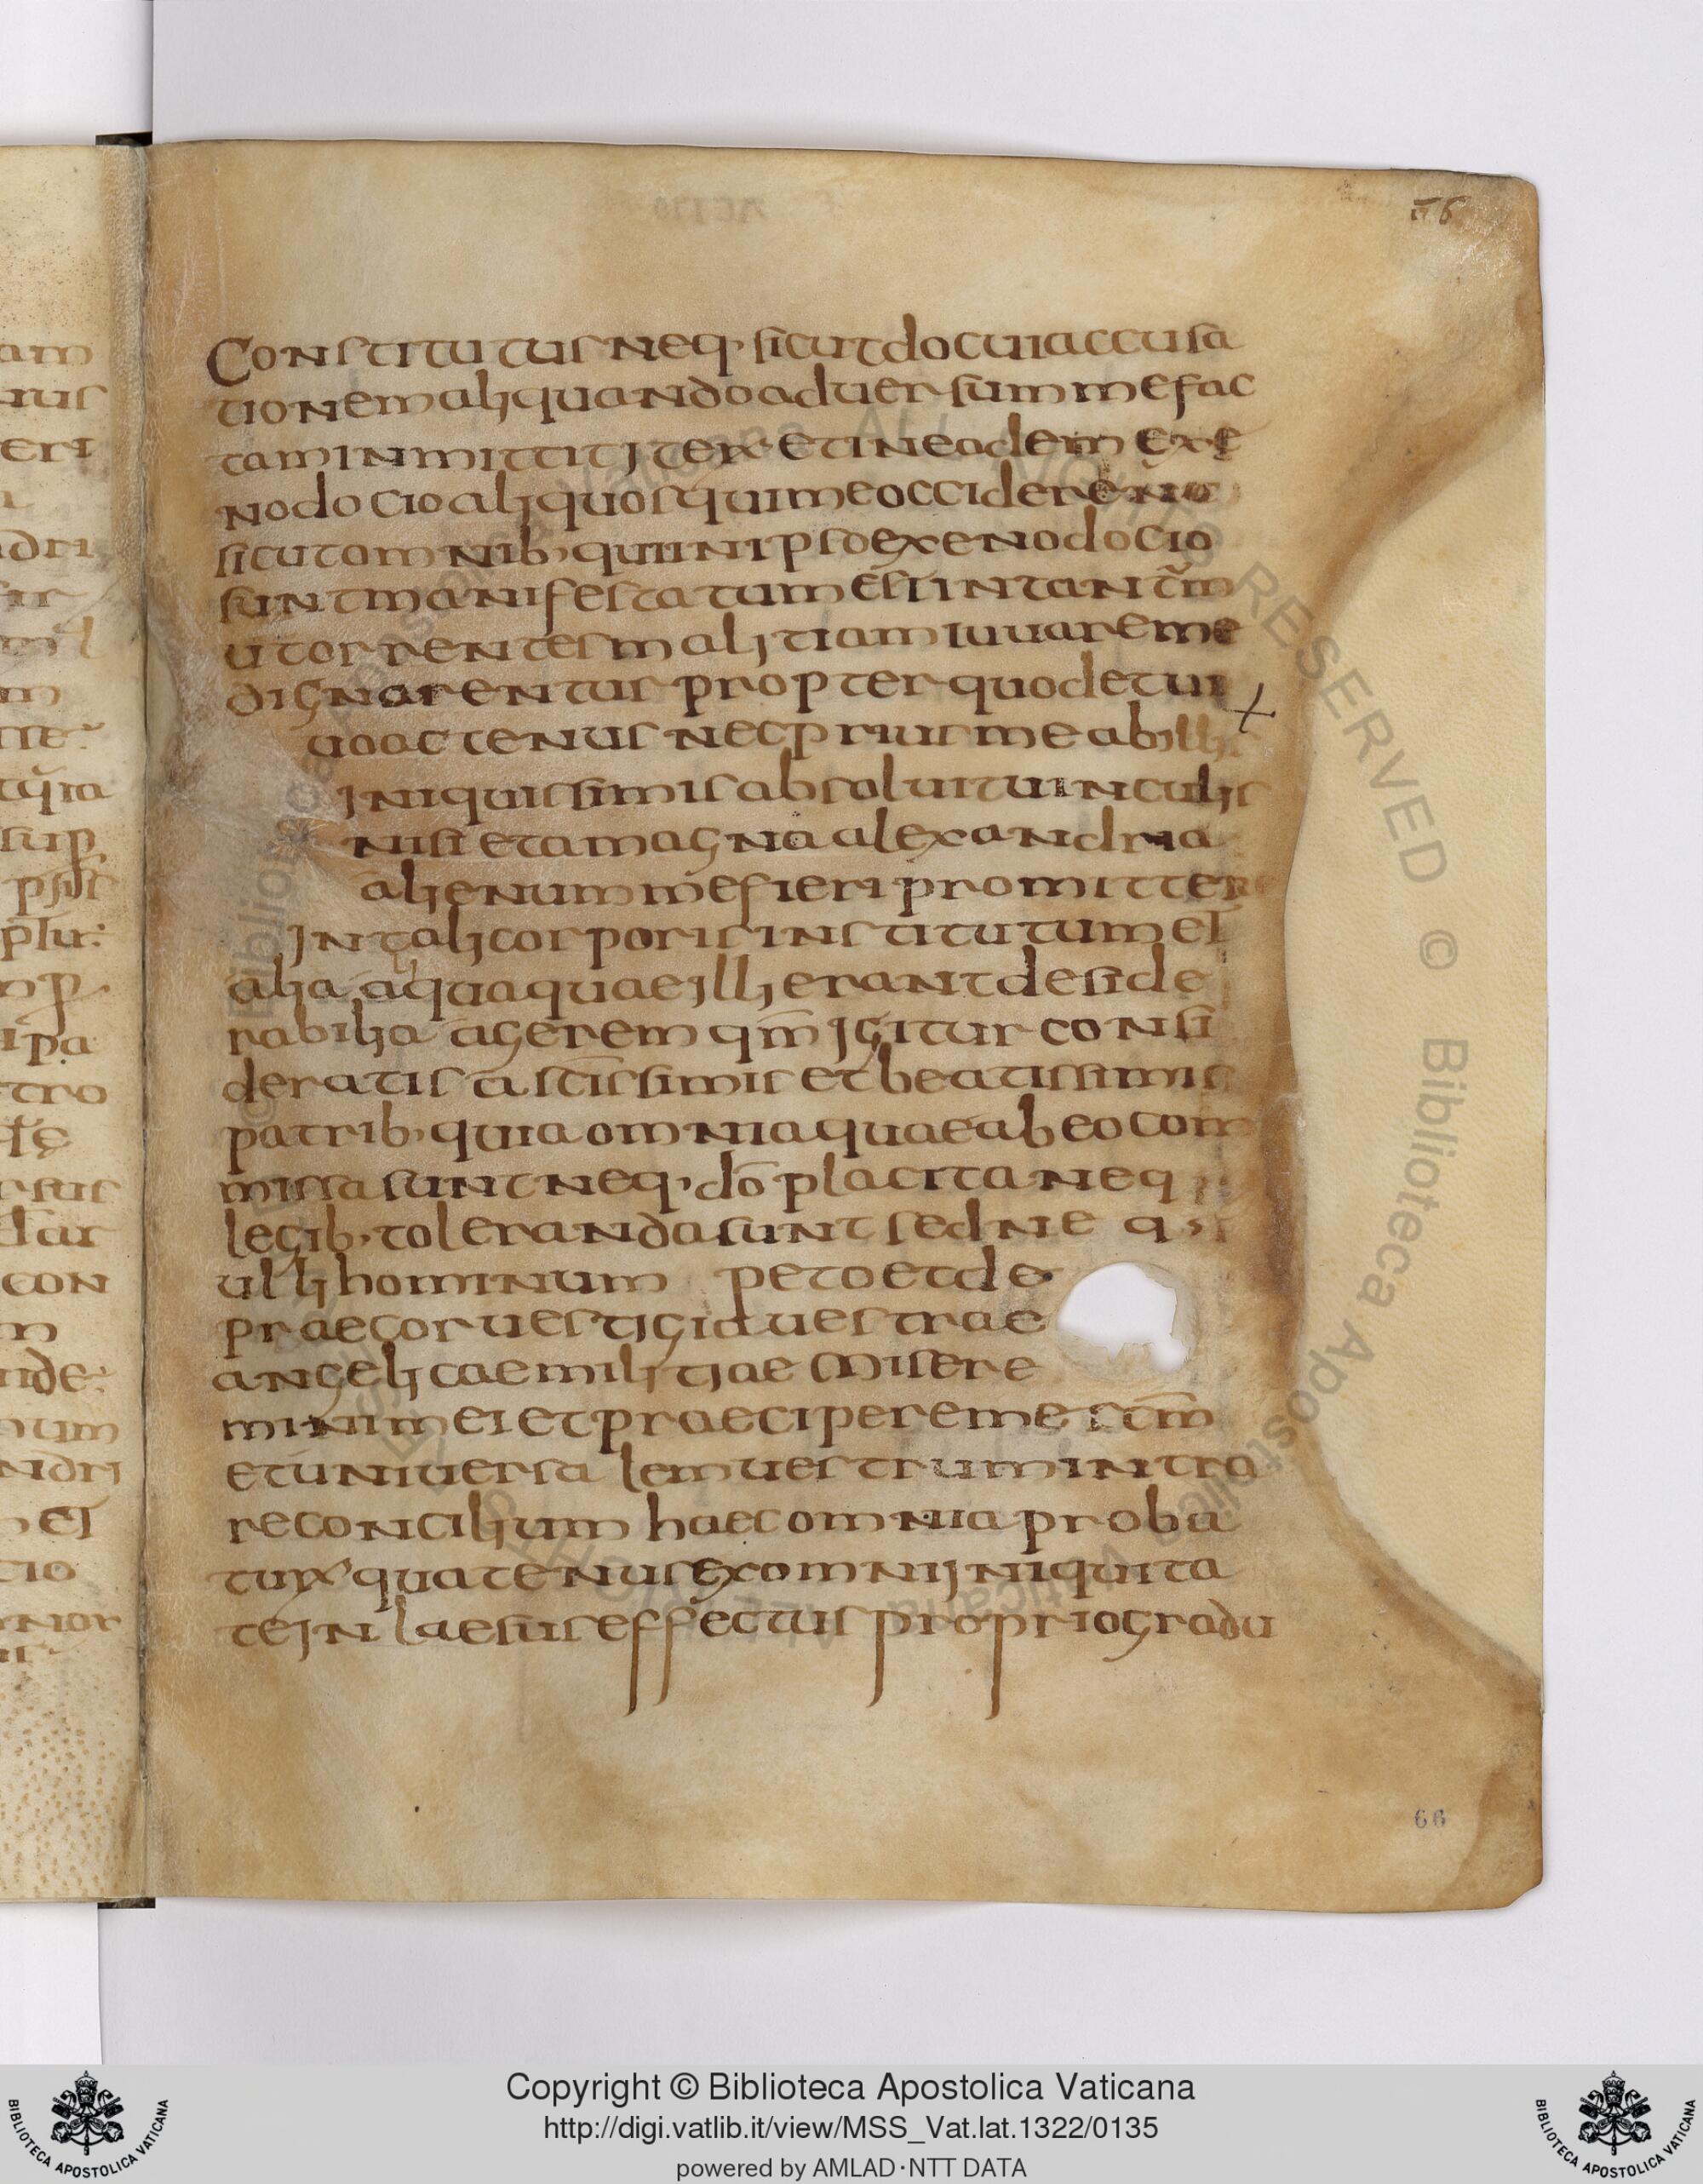 66
Constitutus neq· sicut docui accusa
tionem aliquando aduersum me fac
tam inmittit iter· et in eadem exe
nodocio aliquos qui me occiderent
sicut omnib· qui in ipso exenodocio
sunt manifestatum est in tantum
ut orrentes malitiam iuuare me
dignarentur propter quod et ui
uo actenus nec prius me ab illis
iniquissimis absoluit uinculis
nisi et a magna alexandria
alienum me fieri promittere
In tali corporis institutum et
alia aqua quae illi erant deside
rabilia agerem qm̄ igitur consi
deratis a sc̄issimis et beatissimis
patrib· quia omnia quae ab eo com
missa sunt neq· dō placita neq
legib· toleranda sunt sed ne q·
ulli hominum peto et de
praecor uestigia uestrae
angelicae militiae misere
mini mei et praecipere me sc̄m
et uniuersalem uestrum intra
re concilium haec omnia proba
turx· quatenus ex omni iniquita
te inlaesus effectus proprio gradu
66
am
nus
eri
dri
m
tro
sus
con
m
num
ndri
ei
cio
Copyright © Biblioteca Apostolica Vaticana
http://digi.vatlib.it/view/MSS_Vat.lat.1322/0135
powered by AMLAD·NTT DATA
BIBLIOTECA APOSTOLICA VATICANA
BIBLIOTECA APOSTOLICA VATICANA